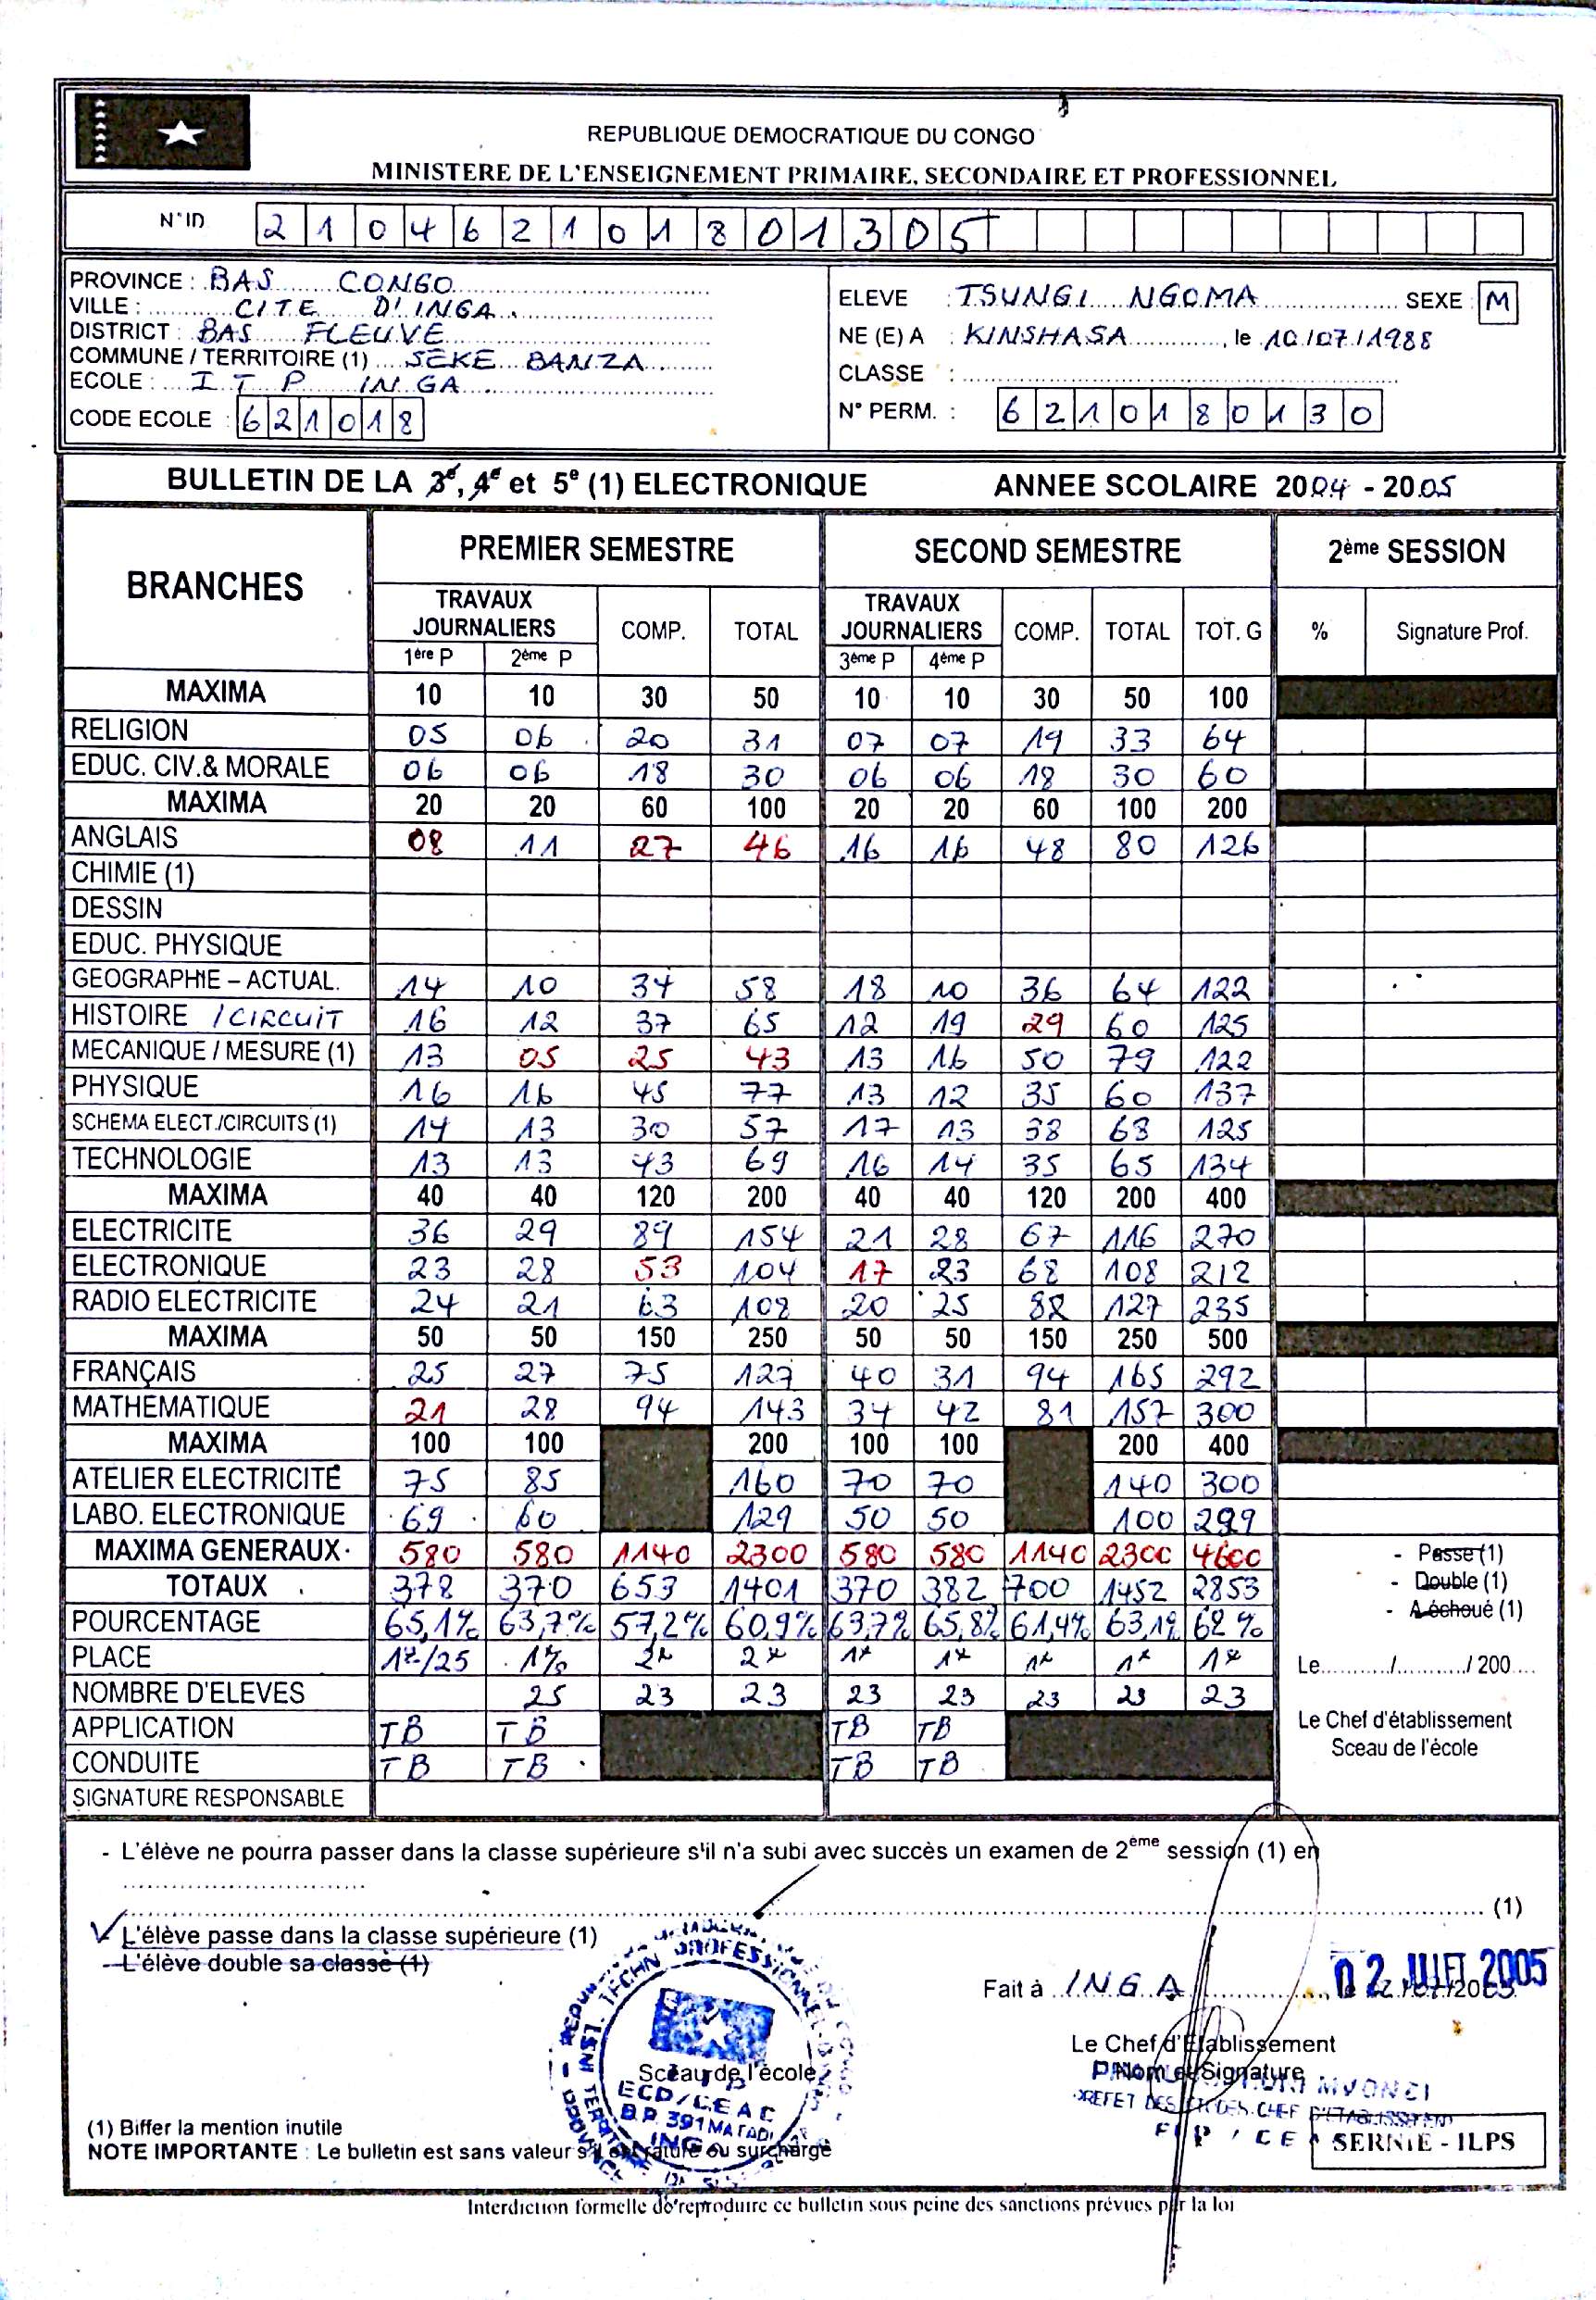 REPUBLIQUE DEMOCRATIQUE DU CONGO
MINISTERE DE L'ENSEIGNEMENT PRIMAIRE, SECONDAIRE ET PROFESSIONNEL
N°ID 2 1 0 4 6 2 1 0 1 8 0 1 3 0 5
PROVINCE : BAS CONGO
VILLE : CITE D'INGA
DISTRICT : BAS FLEUVE
COMMUNE / TERRITOIRE (1) SEKE BANZA
ECOLE : I T P INGA
CODE ECOLE : 6 2 1 0 1 8
ELEVE : TSUNGI NGOMA SEXE : M
NE (E) A : KINSHASA, le 10/07/1988
CLASSE :
N° PERM. : 6 2 1 0 1 8 0 1 3 0
BULLETIN DE LA 3e, 4e et 5e (1) ELECTRONIQUE ANNEE SCOLAIRE 2004 - 2005
BRANCHES PREMIER SEMESTRE SECOND SEMESTRE 2ème SESSION
TRAVAUX JOURNALIERS COMP. TOTAL TRAVAUX JOURNALIERS COMP. TOTAL TOT. G % Signature Prof.
1ère P 2ème P 3ème P 4ème P
MAXIMA 10 10 30 50 10 10 30 50 100
RELIGION 05 06 20 31 07 07 19 33 64
EDUC. CIV.& MORALE 06 06 18 30 06 06 18 30 60
MAXIMA 20 20 60 100 20 20 60 100 200
ANGLAIS 08 11 27 46 16 16 48 80 126
CHIMIE (1)
DESSIN
EDUC. PHYSIQUE
GEOGRAPHIE – ACTUAL. 14 10 34 58 18 10 36 64 122
HISTOIRE / CIRCUIT 16 12 37 65 12 19 29 60 125
MECANIQUE / MESURE (1) 13 05 25 43 13 16 50 79 122
PHYSIQUE 16 16 45 77 13 12 35 60 137
SCHEMA ELECT./CIRCUITS (1) 14 13 30 57 17 13 38 68 125
TECHNOLOGIE 13 13 43 69 16 14 35 65 134
MAXIMA 40 40 120 200 40 40 120 200 400
ELECTRICITE 36 29 89 154 21 28 67 116 270
ELECTRONIQUE 23 28 53 104 17 23 68 108 212
RADIO ELECTRICITE 24 21 63 108 20 25 82 127 235
MAXIMA 50 50 150 250 50 50 150 250 500
FRANÇAIS 25 27 75 127 40 31 94 165 292
MATHEMATIQUE 21 28 94 143 34 42 81 157 300
MAXIMA 100 100 200 100 100 200 400
ATELIER ELECTRICITÉ 75 85 160 70 70 140 300
LABO. ELECTRONIQUE 69 60 129 50 50 100 229
MAXIMA GENERAUX 580 580 1140 2300 580 580 1140 2300 4600
TOTAUX 378 370 653 1401 370 382 700 1452 2853
POURCENTAGE 65,1% 63,7% 57,2% 60,9% 63,7% 65,8% 61,4% 63,1% 62%
PLACE 1e/25 1e 2e 2e 1e 1e 1e 1e 1e
NOMBRE D'ELEVES 25 23 23 23 23 23 23 23
APPLICATION TB TB TB TB
CONDUITE TB TB TB TB
SIGNATURE RESPONSABLE
- Passe (1)
- Double (1)
- A échoué (1)
Le........../........../ 200....
Le Chef d'établissement
Sceau de l'école
- L'élève ne pourra passer dans la classe supérieure s'il n'a subi avec succès un examen de 2ème session (1) en
(1)
L'élève passe dans la classe supérieure (1)
- L'élève double sa classe (1)
Fait à INGA
02 JUILET 2005
Le Chef d'Etablissement
Nom et Signature
PREFET DES ETUDES CHEF D'ETABLISSEMENT
INST. TECHN PROFESSIONNEL
Sceau de l'école
ECD/CEAC
B.P. 391 MATADI
INGA
(1) Biffer la mention inutile
NOTE IMPORTANTE : Le bulletin est sans valeur s'il est raturé ou surchargé
SERNIE - ILPS
Interdiction formelle de reproduire ce bulletin sous peine des sanctions prévues par la loi